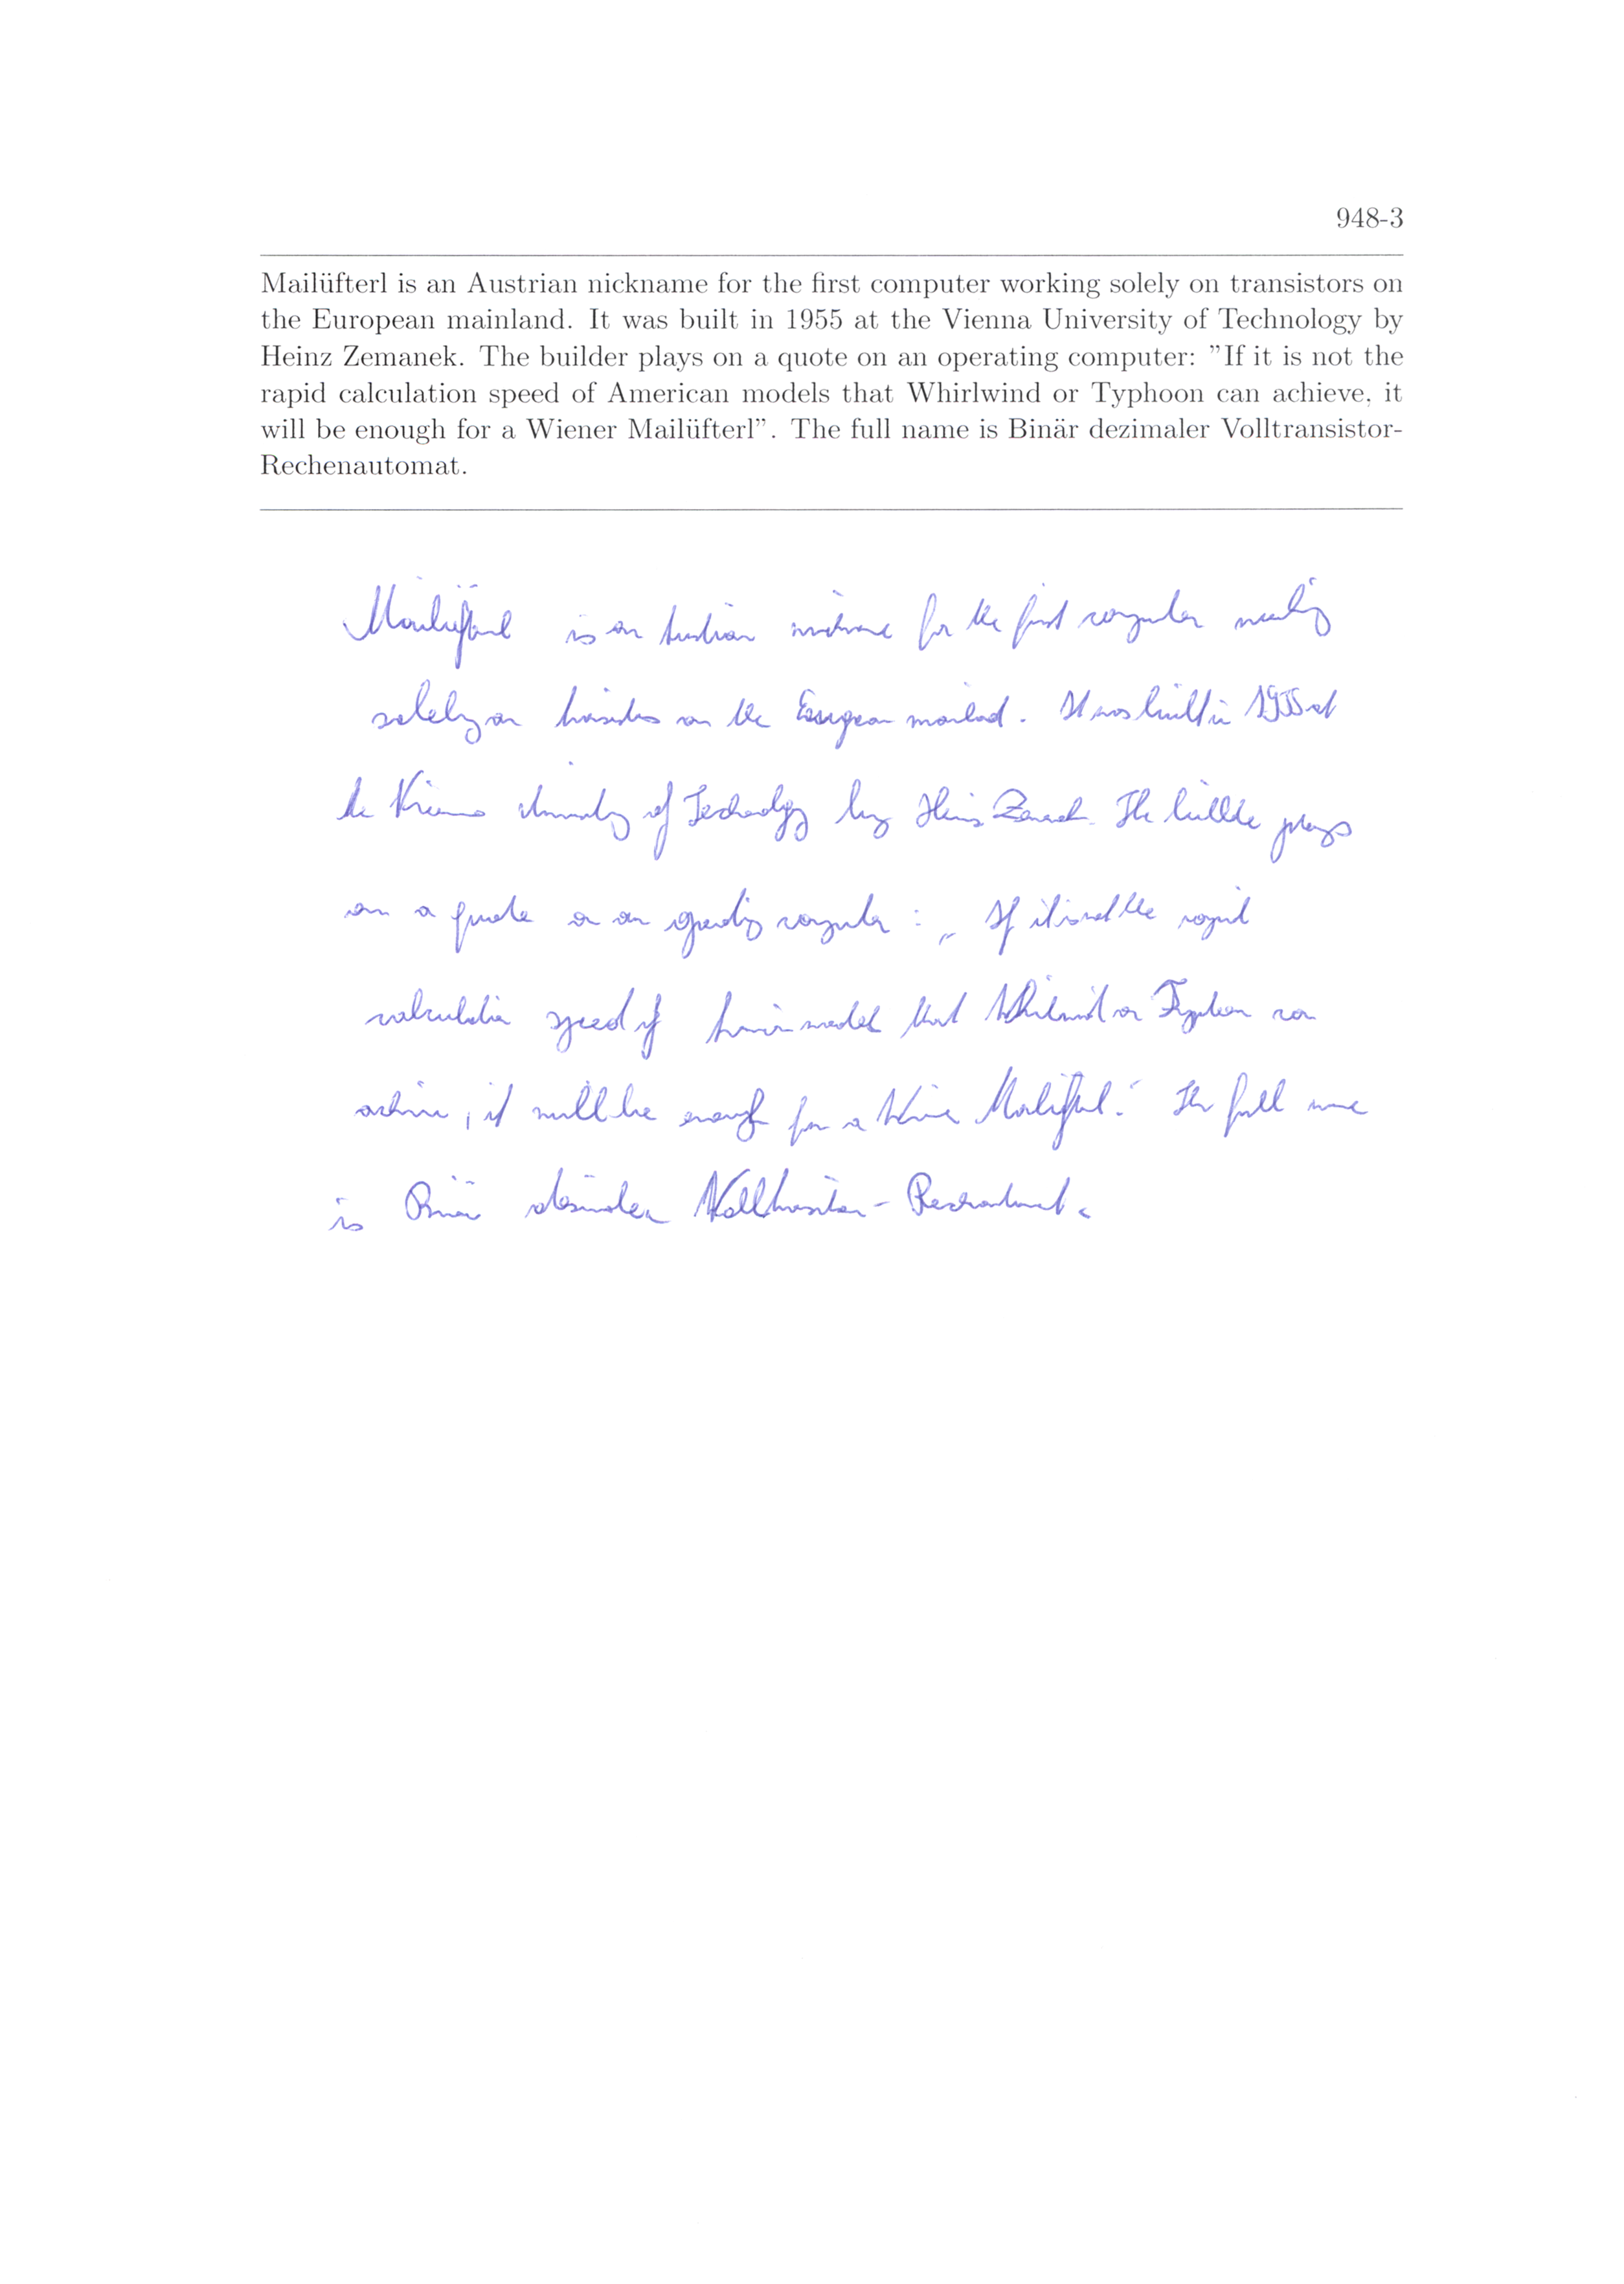 948-3
Mailüfterl is an Austrian nickname for the first computer working solely on transistors on
the European mainland. It was built in 1955 at the Vienna University of Technology by
Heinz Zemanek. The builder plays on a quote on an operating computer: "If it is not the
rapid calculation speed of American models that Whirlwind or Typhoon can achieve, it
will be enough for a Wiener Mailüfterl". The full name is Binär dezimaler Volltransistor-
Rechenautomat.
Mailüfterl is an Austrian nickname for the first computer working
solely on transistors on the European mainland. It was built in 1955 at
the Vienna University of Technology by Heinz Zemanek. The builder plays
on a quote on an operating computer: „If it is not the rapid
calculation speed of American model that Whirlwind or Typhoon can
achieve, it will be enough for a Wiener Mailüfterl". The full name
is Binär dezimaler Volltransistor-Rechenautomat.